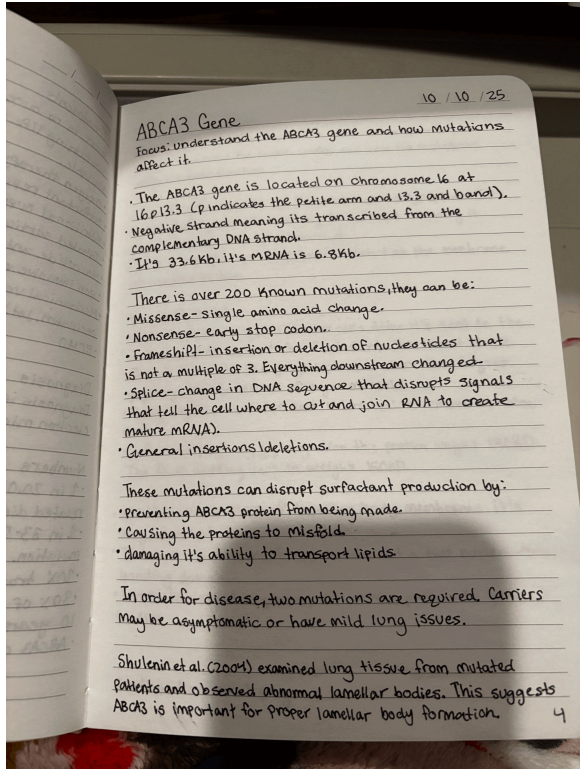 10/10/25
ABCA3 Gene
Focus: understand the ABCA3 gene and how mutations
affect it.
• The ABCA3 gene is located on chromosome 16 at
16p13.3 (p indicates the petite arm and 13.3 and band).
• Negative strand meaning its transcribed from the
complementary DNA strand.
• It's 33.6Kb, it's mRNA is 6.8Kb.
There is over 200 known mutations, they can be:
• Missense- single amino acid change.
• Nonsense- early stop codon.
• Frameshift- insertion or deletion of nucleotides that
is not a multiple of 3. Everything downstream changed
• Splice- change in DNA sequence that disrupts signals
that tell the cell where to cut and join RNA to create
mature mRNA).
• General insertions/deletions.
These mutations can disrupt surfactant production by:
• Preventing ABCA3 protein from being made.
• Causing the proteins to misfold.
• damaging it's ability to transport lipids
In order for disease, two mutations are required. Carriers
may be asymptomatic or have mild lung issues.
Shulenin et al. (2004) examined lung tissue from mutated
patients and observed abnormal lamellar bodies. This suggests
ABCA3 is important for proper lamellar body formation.
4